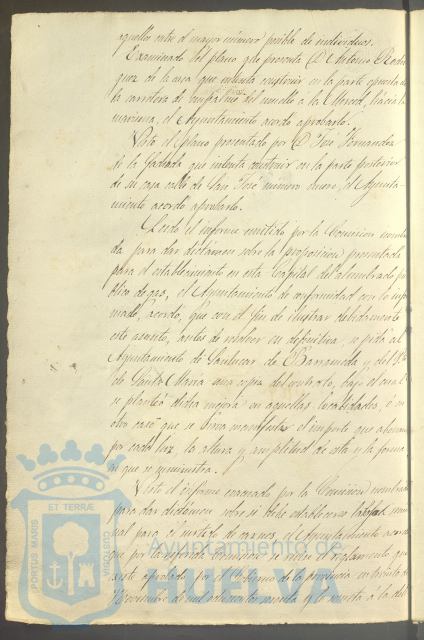 aquellos entre el mayor número posible de individuos.
Examinado el plano que presenta D. Antonio Rodri
guez de la casa que intenta construir en la parte opuesta de
la carretera de empalme del muelle a la Merced, hácia la
marisma, el Ayuntamiento acordo aprobarlo.
Visto el plano presentado por D. José Fernandez
de la fachada que intenta construir en la parte posterior
de su casa calle de San José número nueve, el Ayunta-
miento acordo aprobarlo.
Leido el informe emitido por la Comision nombra
da para dar dictámen sobre la proposicion presentada
para el establecimiento en esta Capital del alumbrado pú
blico de gas, el Ayuntamiento de conformidad con lo infor
mado, acordó, que con el fin de ilustrar debidamente
este asunto, antes de resolver en definitiva, se pida al
Ayuntamiento de Sanlucar de Barrameda y del P.to
de Santa Maria una copia del contrato, bajo el cual
se planteó dicha mejora en aquellas localidades, ó en
otro caso que se sirva manifestar el importe que abonan
por cada luz, la altura y amplitud de esta y la forma
en que se suministra.
Visto el informe evacuado por la Comision nombrada
para dar dictámen sobre si debe establecerse
pal para el de carnes, el Ayuntamiento acordó
que por la misma Comision se revise el reglamento que
aprobado por el Gobierno de la provincia en treinta de
Noviembre de mil ochocientos y a la
PORTUS MARIS
ET TERRÆ
CUSTODIA
Ayuntamiento de
HUELVA